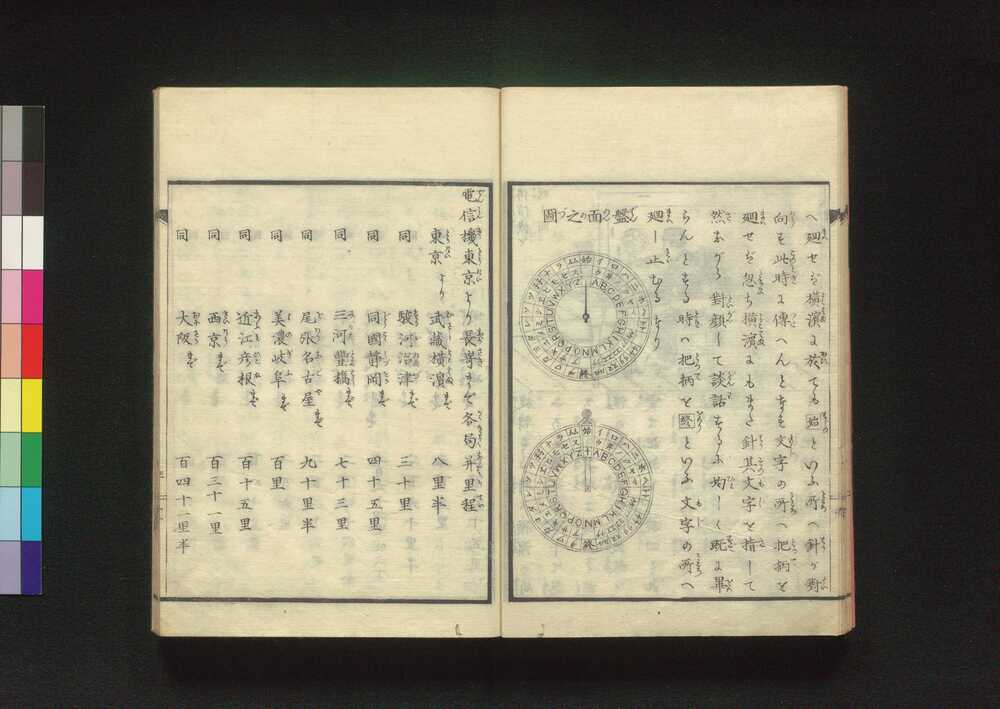 へ廻せバ横濱に於ても始といふ所へ針が對
向す此時に傳へんとする文字の所へ把柄を
廻せバ忽ち横濱にもまた針其文字を指して
然ながら對顔して談話するに均しく既に畢
らんとする時ハ把柄を終といふ文字の所へ
廻し止むるなり
盤面之圖
始 イロハニホヘト
ABCDEFGHIJKLMNOPQRSTUVWXYZ
終
始 イロハニホヘト
ABCDEFGHIJKLMNOPQRSTUVWXYZ
終
電信機東京より長崎まで各局并里程
東京より 武藏横濱まで 八里半
同 駿河沼津まで 三十里
同 同國静岡まで 四十五里
同 三河豐橋まで 七十三里
同 尾張名古屋まで 九十里半
同 美濃岐阜まで 百里
同 近江彦根まで 百十五里
同 西京まで 百三十一里
同 大阪まで 百四十一里半